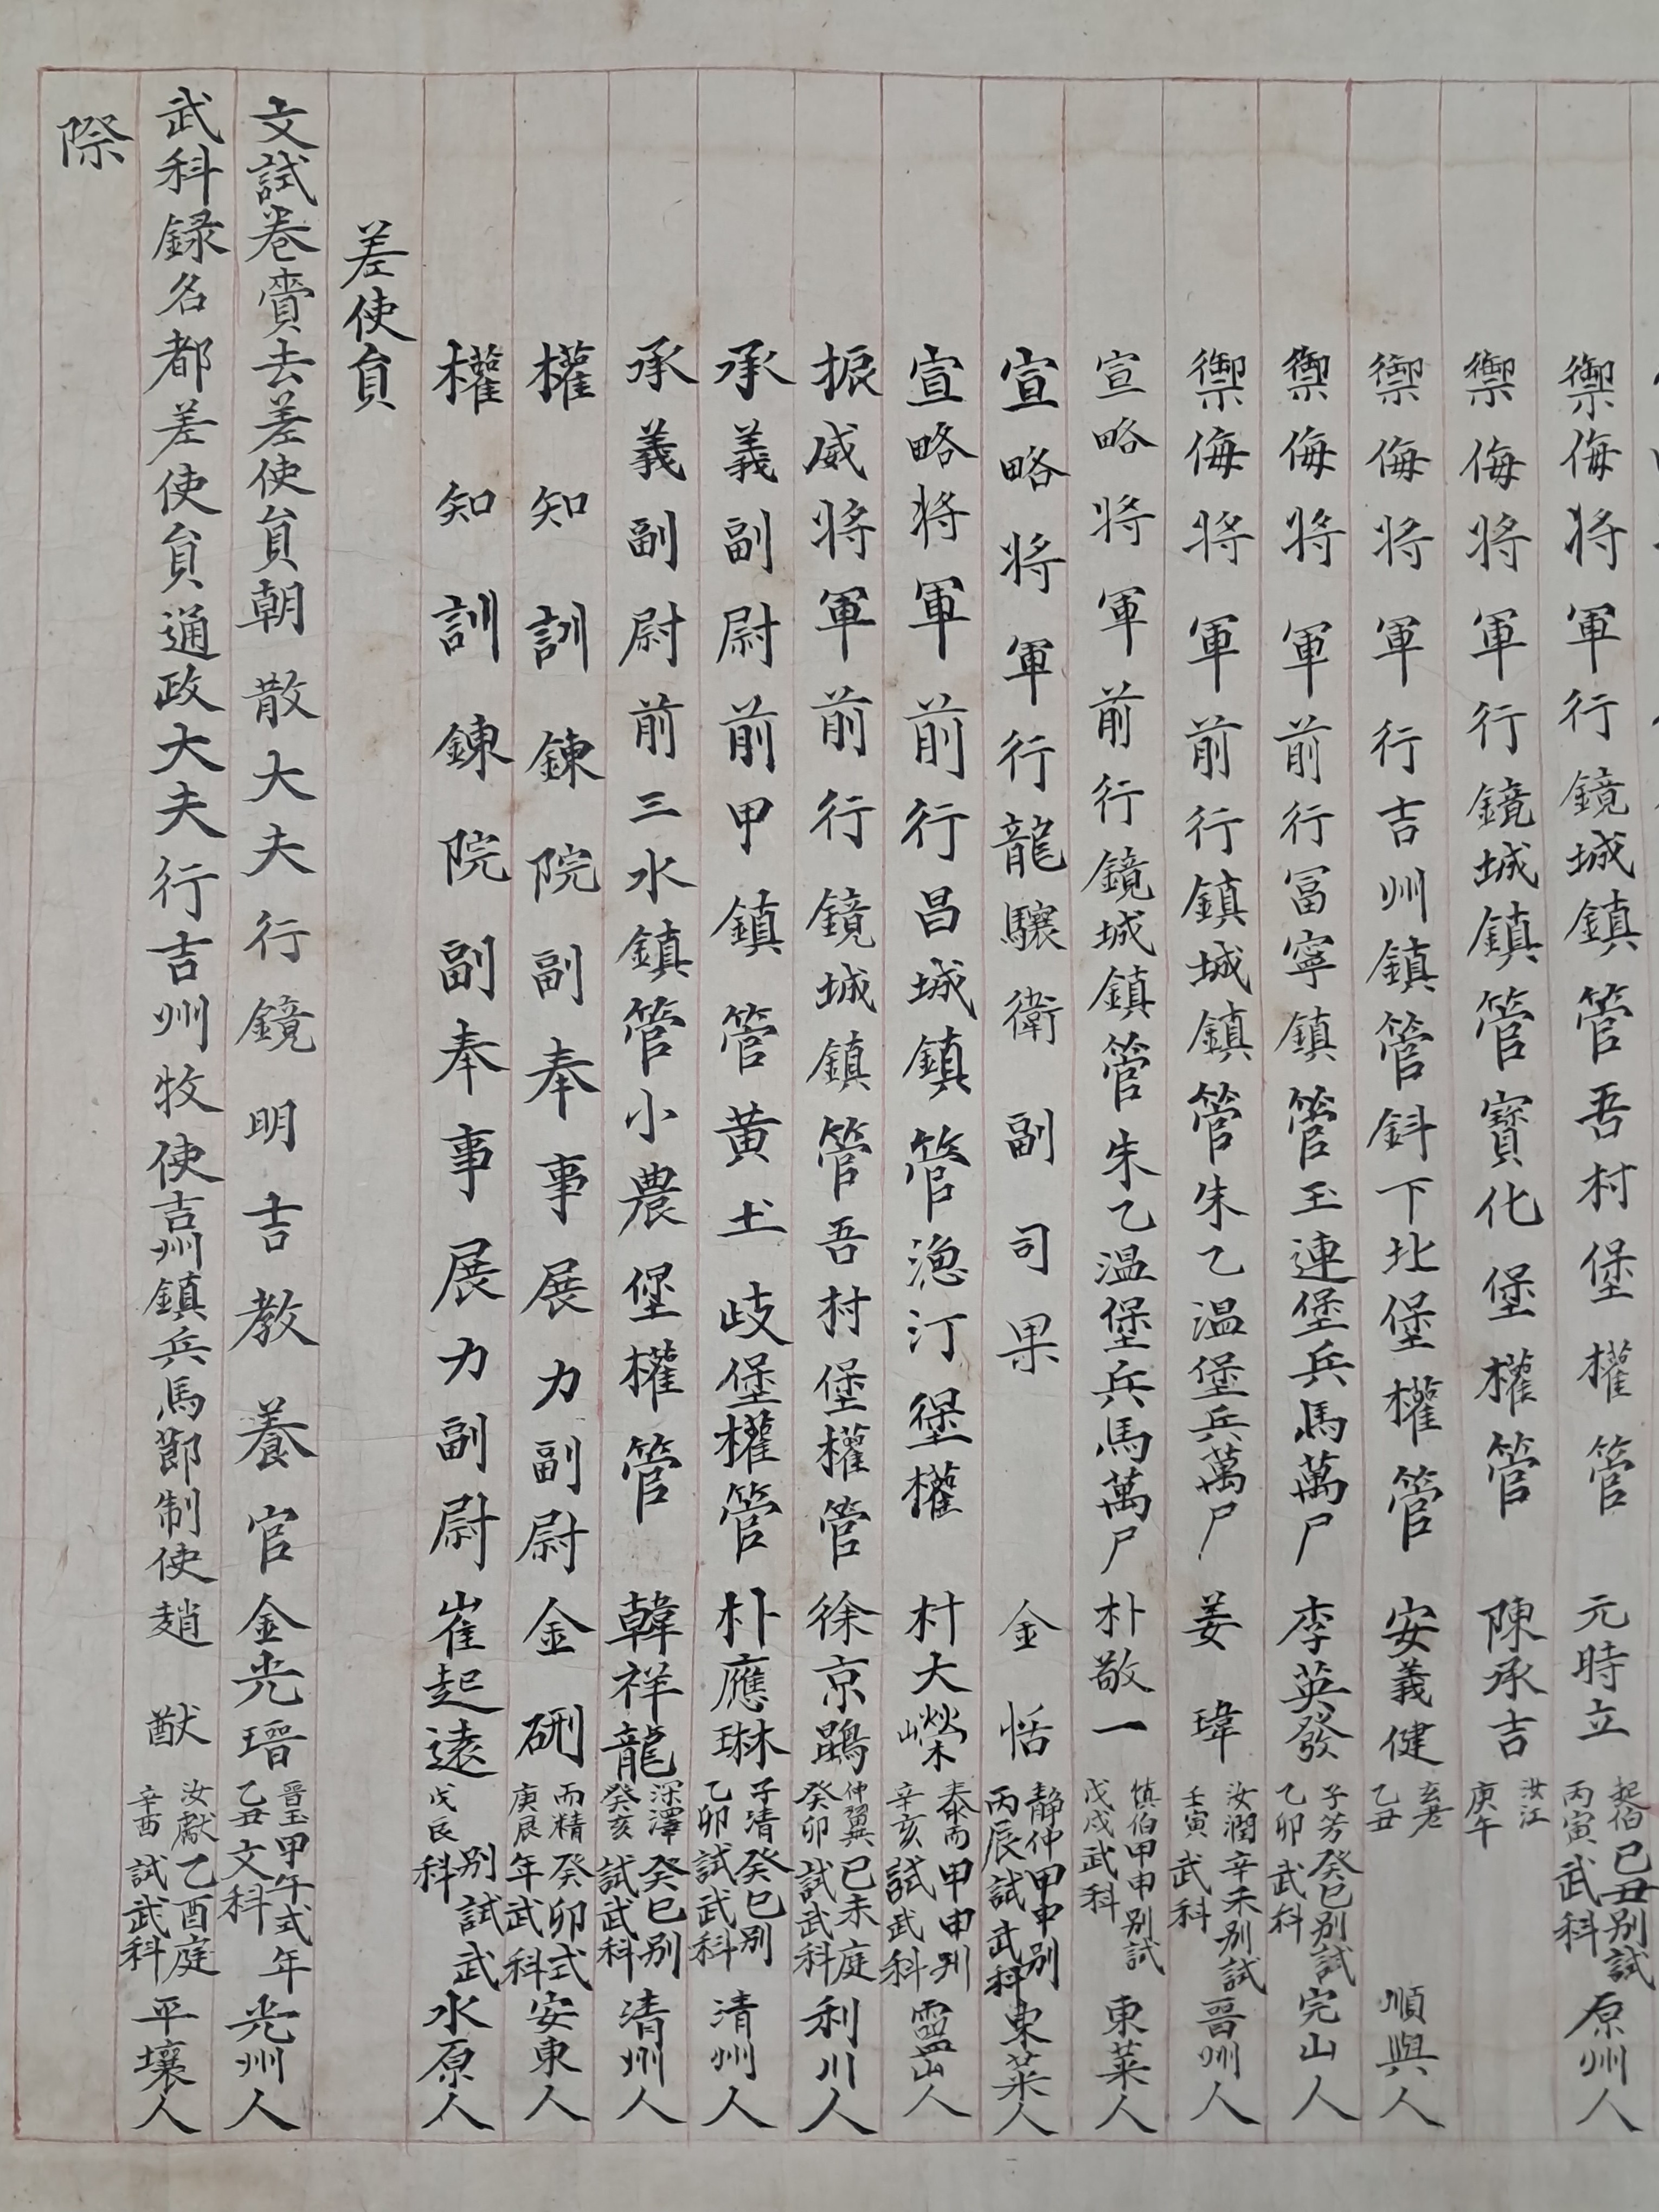 禦侮將軍行鏡城鎮管吾村堡權管 元時立 起伯丙寅 己丑別試武科 原州人
禦侮將軍行鏡城鎮管寶化堡權管 陳承吉 汝江庚午
禦侮將軍行吉州鎮管斜下北堡權管 安義健 乙丑 順興人
禦侮將軍前行富寧鎮管玉連堡兵馬萬戶 李英發 子芳乙卯 癸巳別試武科 完山人
禦侮將軍前行鎮城鎮管朱乙温堡兵萬戶 姜瑋 汝潤壬寅 辛未別試武科 晉州人
宣略將軍前行鏡城鎮管朱乙温堡兵馬萬戶 朴敬一 慎伯戊戌 甲申別試武科 東萊人
宣略將軍行龍驤衛副司果 金恬 静仲丙辰 甲申別試武科 東萊人
宣略將軍前行昌城鎮管漁汀堡權 朴大嶸 泰而辛亥 甲申別試武科 靈山人
振威將軍前行鏡城鎮管吾村堡權管 徐京鵾 仲翼癸卯 己未庭試武科 利川人
承義副尉前甲鎮管黄圡歧堡權管 朴應琳 子清乙卯 癸巳別試武科 清州人
承義副尉前三水鎮管小農堡權管 韓祥龍 深澤癸亥 癸巳別試武科 清州人
權知訓鍊院副奉事展力副尉 金硎 而精庚辰 癸卯式年武科 安東人
權知訓鍊院副奉事展力副尉 崔起遠 戊辰 別試武科 水原人
差使員
文試卷賫去差使員朝散大夫行鏡明吉教養官 金光瑨 晋玉乙丑 甲午式年文科 光州人
武科録名都差使員通政大夫行吉州牧使吉州鎮兵馬節制使 趙猷 汝獻辛酉 乙酉庭試武科 平壤人
際